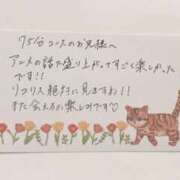 75分コースのお兄様へ
アニメの話で盛り上がってすごく楽しかった
です!!
リコリス絶対に見ますね!!
また会える方に楽しみです♡